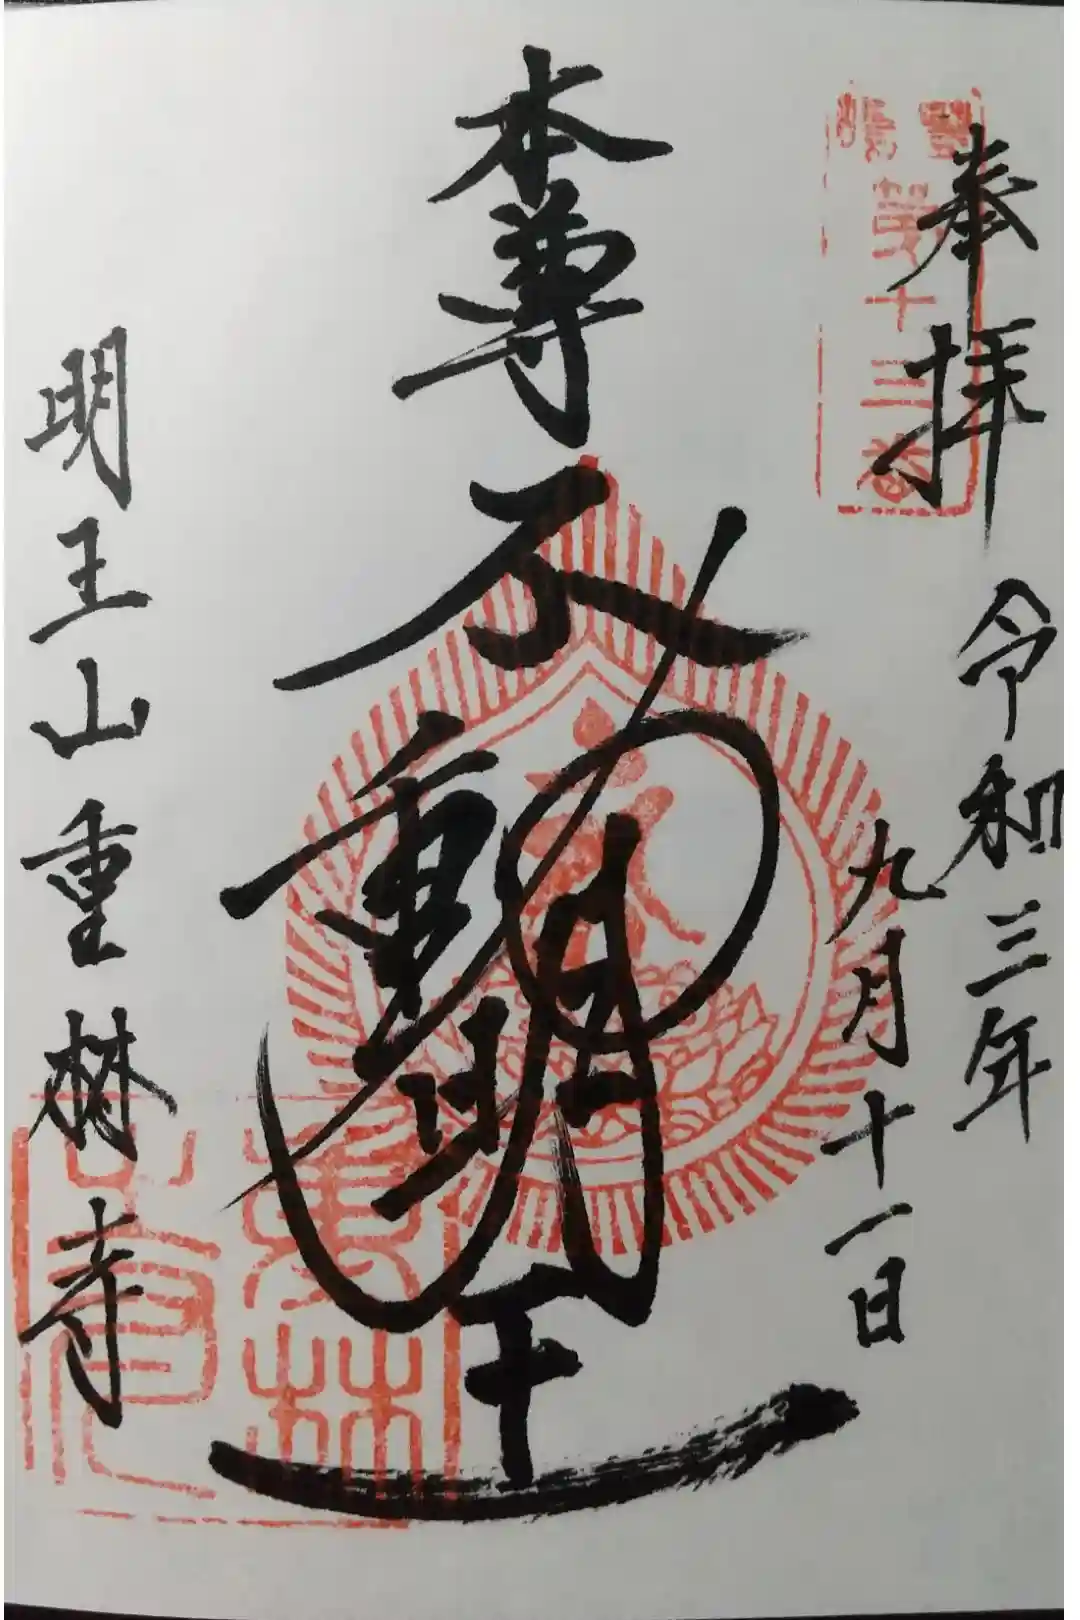 奉拝
令和三年
九月十一日
本尊
不動明王
明王山重林寺
第十三番